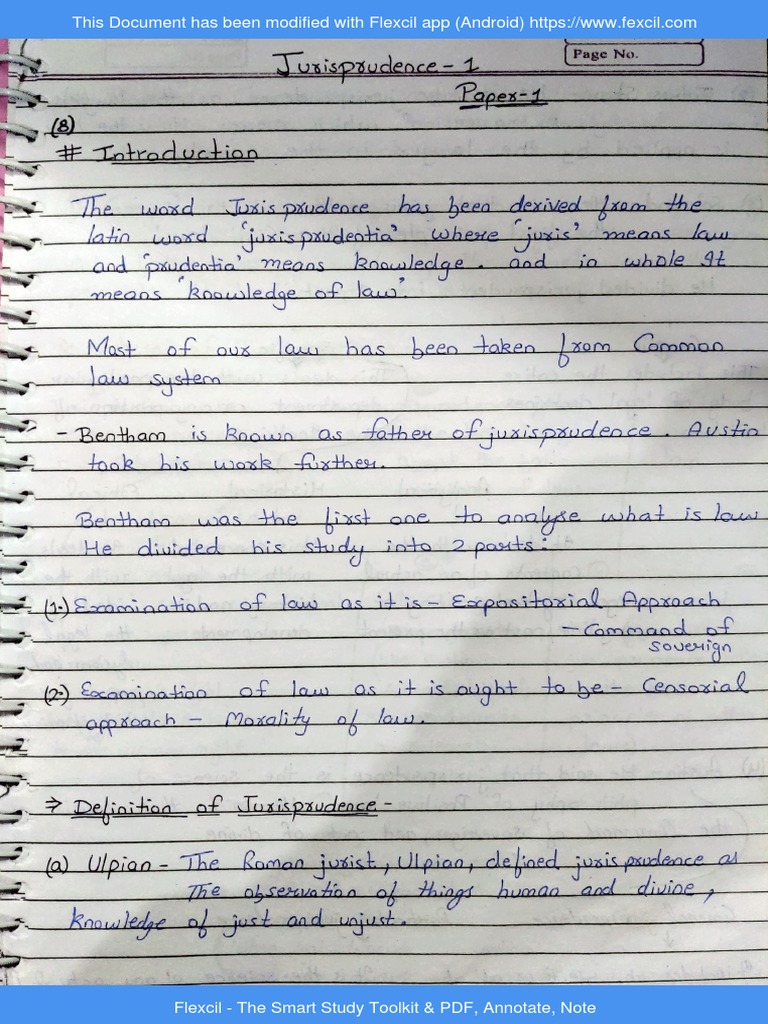 This Document has been modified with Flexcil app (Android) https://www.fexcil.com
Page No.
Jurisprudence - 1
Paper-1
(8)
# Introduction
The word Jurisprudence has been derived from the
latin word 'jurisprudentia' where 'juris' means law
and 'prudentia' means knowledge. and in whole It
means 'knowledge of law'.
Most of our law has been taken from Common
law system
- Bentham is known as father of jurisprudence. Austin
took his work further.
Bentham was the first one to analyse what is law
He divided his study into 2 parts:
(1.) Examination of law as it is - Expositorial Approach
- Command of
soverign
(2.) Examination of law as it is ought to be - Censorial
approach - Morality of law.
⇒ Definition of Jurisprudence -
(a) Ulpian - The Roman jurist, Ulpian, defined jurisprudence as
The observation of things human and divine,
knowledge of just and unjust.
Flexcil - The Smart Study Toolkit & PDF, Annotate, Note